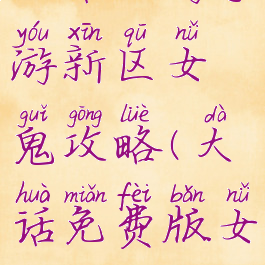 yóu xīn qū nǚ
游新区女
guǐ gōng lüè dà
鬼攻略(大
huà miǎn fèi bǎn nǚ
话免费版女